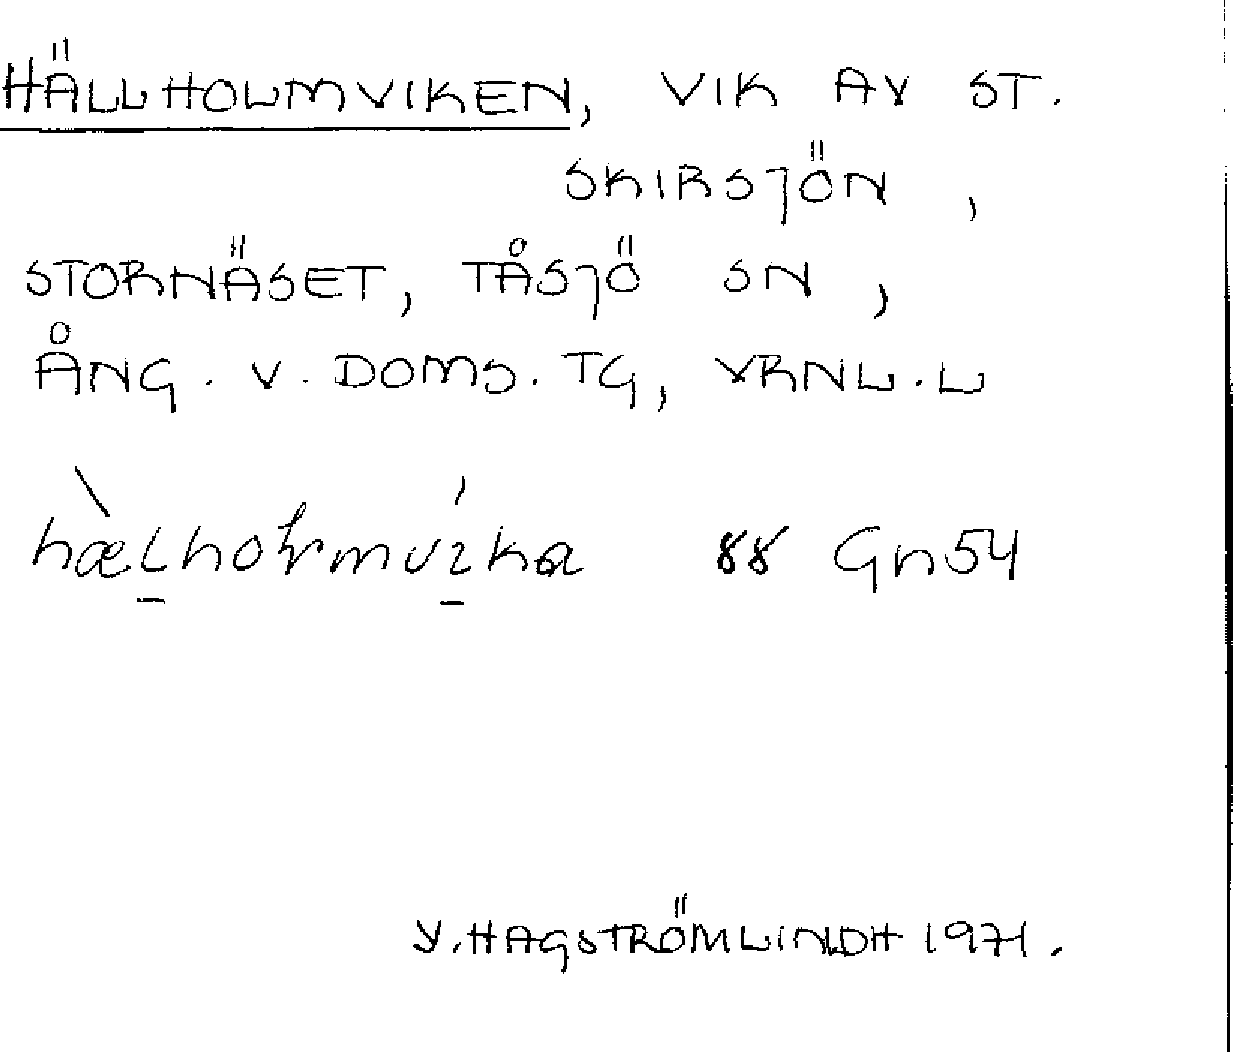 HÄLLHOLMVIKEN, VIK AV ST.
SKIRSJÖN,
STORNÄSET, TÅSJÖ SN,
ÅNG. V. DOMS. TG, VRNL. L
88 Gn54
Y. HAGSTRÖMLINDH 1971.